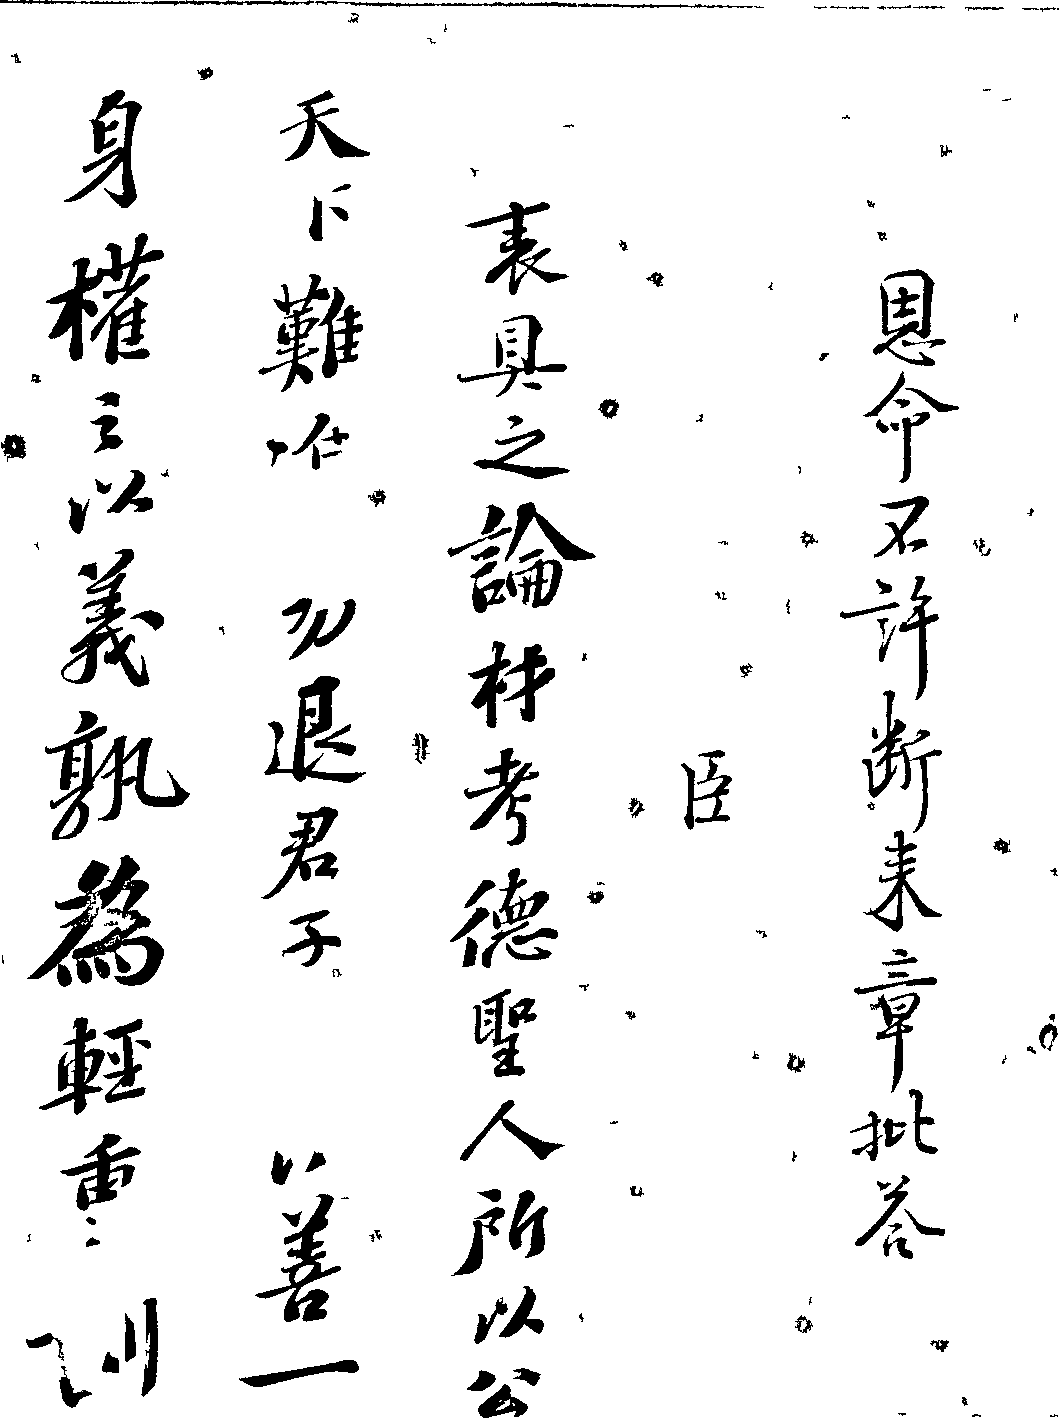 恩命不許斷来章批答
臣
表具之論材考德聖人所以公
天下難退君子以善一
身權之以義孰為輕重